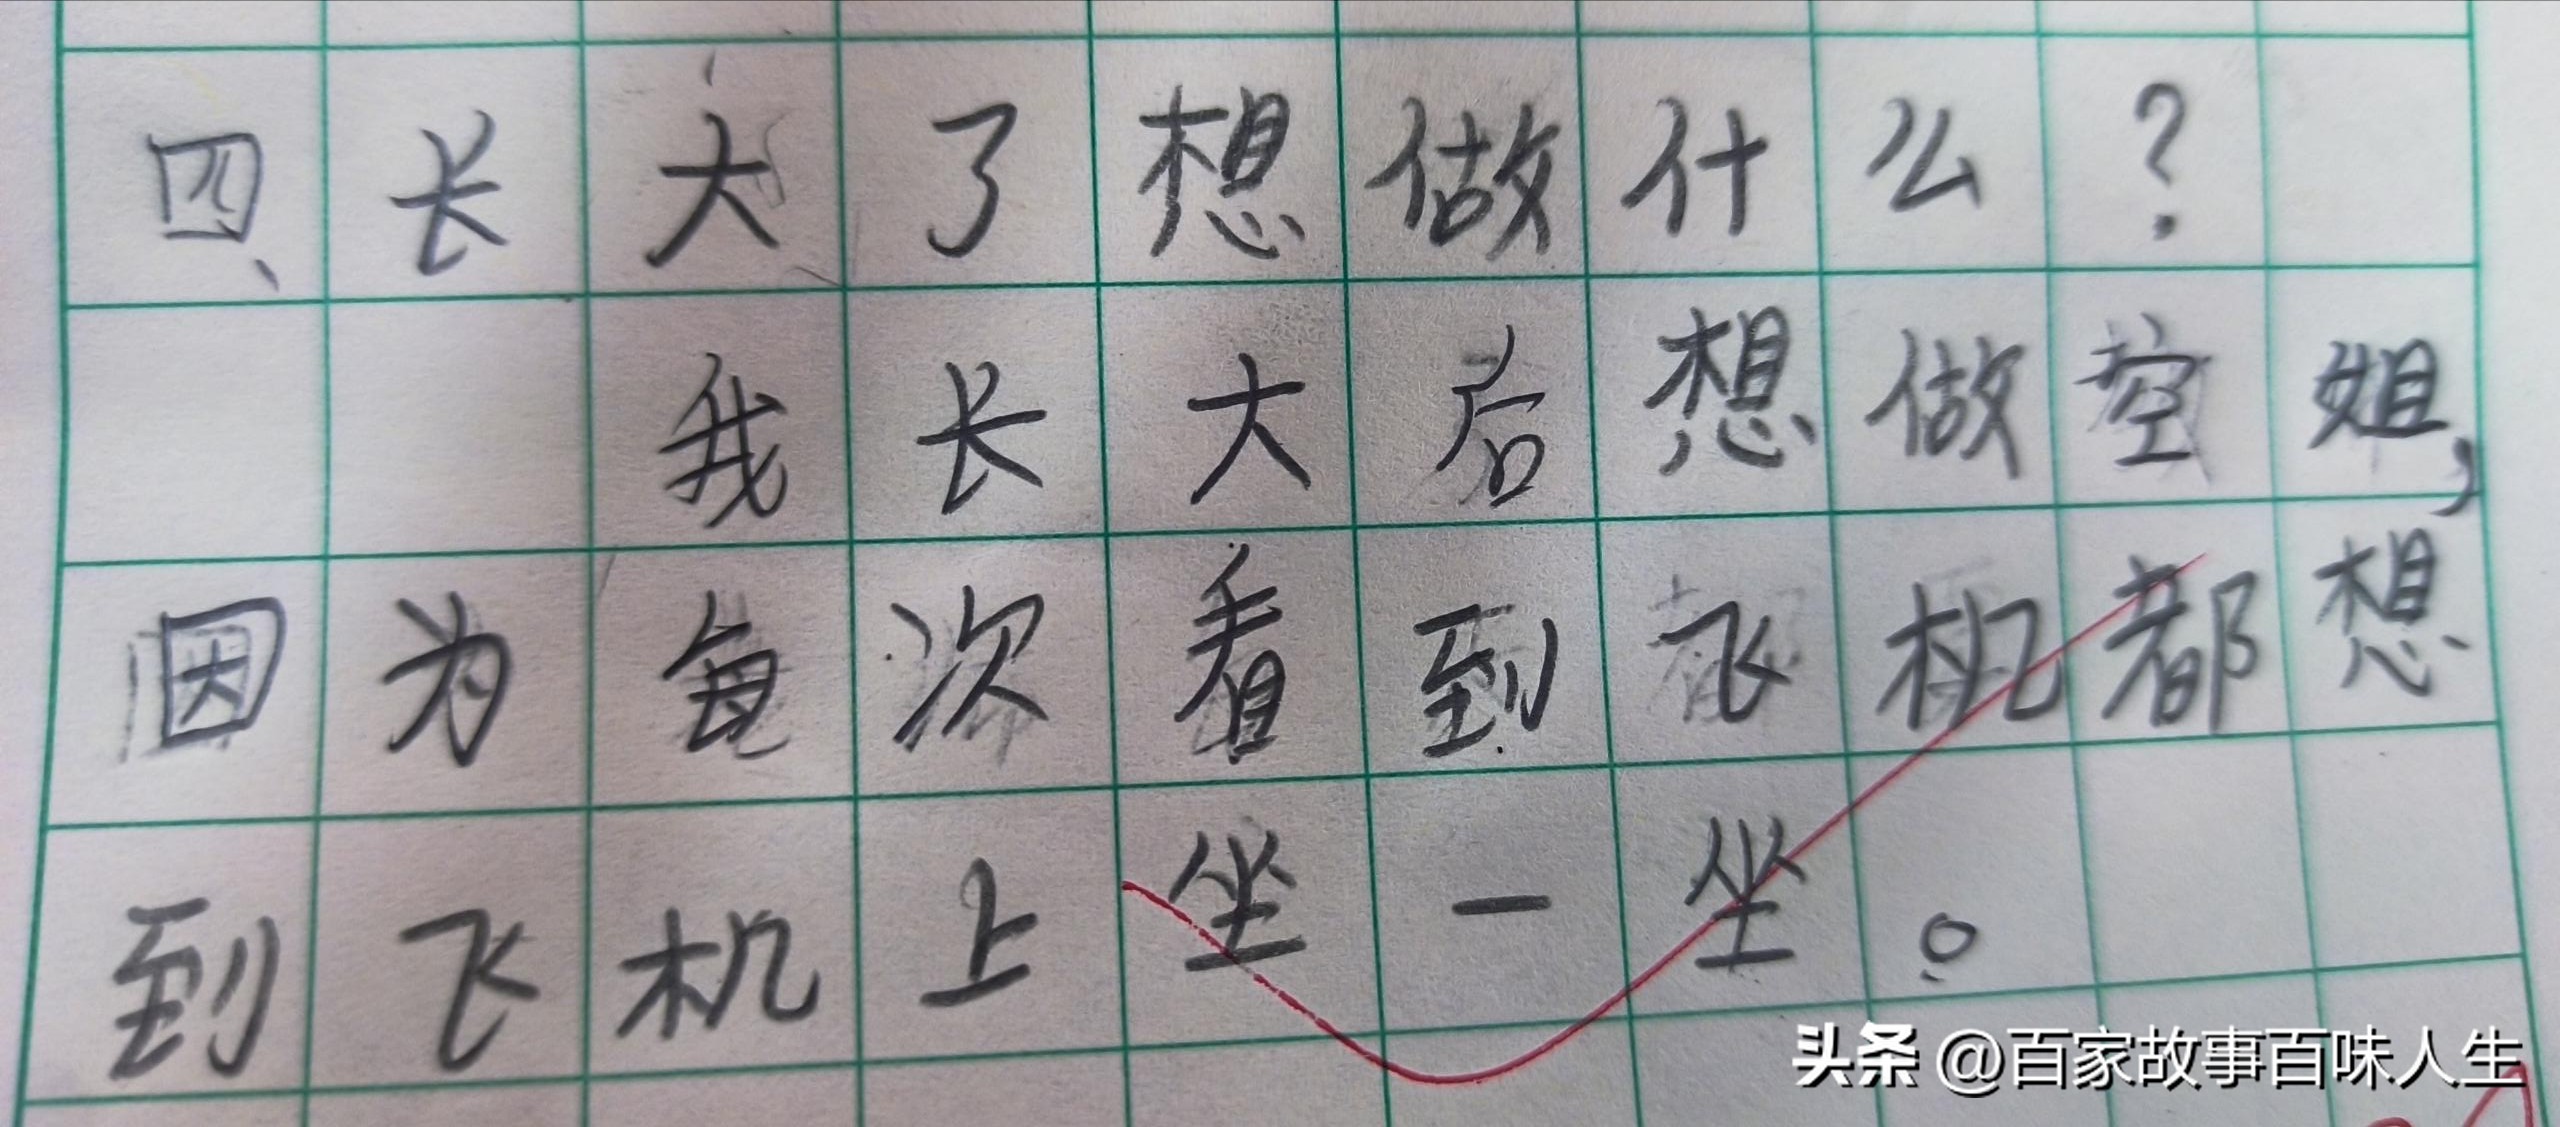 四、长大了想做什么？
我长大后想做空姐，
因为每次看到飞机都想
到飞机上坐一坐。
头条 @百家故事百味人生